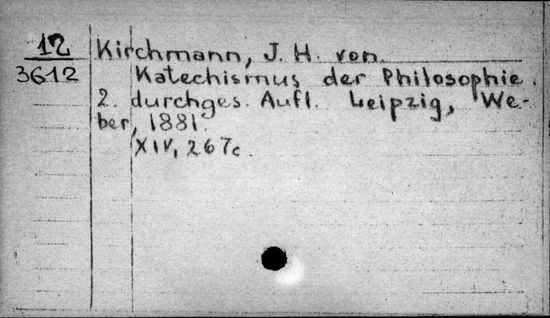 12
3612
Kirchmann, J. H. von.
Katechismus der Philosophie.
2. durchges. Aufl. Leipzig, We-
ber, 1881.
XIV, 267c.